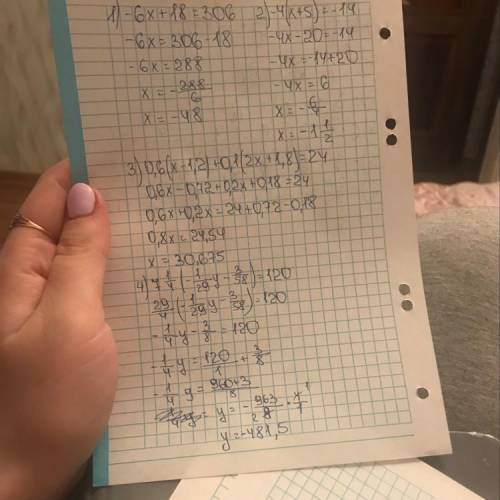 1) -6x+18=306
-6x=306-18
-6x=288
x=-288/6
x=-48
2) -4(x+5)=-14
-4x-20=-14
-4x=-14+20
-4x=6
x=-6/4
x=-1 1/2
3) 0,6(x-1,2)+0,1(2x+1,8)=24
0,6x-0,72+0,2x+0,18=24
0,6x+0,2x=24+0,72-0,18
0,8x=24,54
x=30,675
4) 7 1/4(-1/29 y-3/58)=120
29/4(-1/29 y-3/58)=120
-1/4 y-3/8=120
-1/4 y=120/1+3/8
-1/4 y=960+3/8
y=-963/28·4/1
y=-481,5